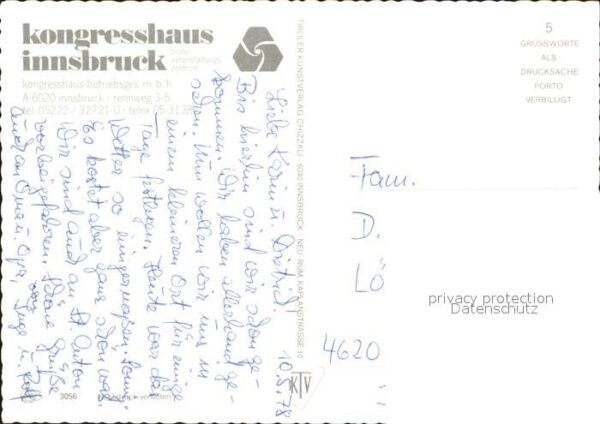 kongresshaus
innsbruck
tiroler
veranstaltungs
zentrum
kongresshaus-betriebsges.m.b.h.
A-6020 innsbruck · rennweg 3
tel. 05222 / 32721-0 · telex 05 3138
TIROLER KUNSTVERLAG CHIZZALI · 6040 INNSBRUCK · NEU RUM KAPLANSTRASSE 10
5
GRUSSWORTE
ALS
DRUCKSACHE
PORTO
VERBILLIGT
10.5.78
Liebe Karin u. Astrid!
Bis hierhin sind wir schon ge-
kommen. Wir haben allerhand ge-
sehen. Nun wollen wir uns in
einem kleineren Ort für einige
Tage festlegen. Heute war das
Wetter so einigermaßen.
Es kostet aber ganz schön was.
Wir sind auch an St. Anton
vorbeigefahren. Liebe Grüße
auch an Oma u. Opa, Inge u. Rolf
Fam.
D.
Lö
4620
privacy protection
Datenschutz
KTV
3056
verboten